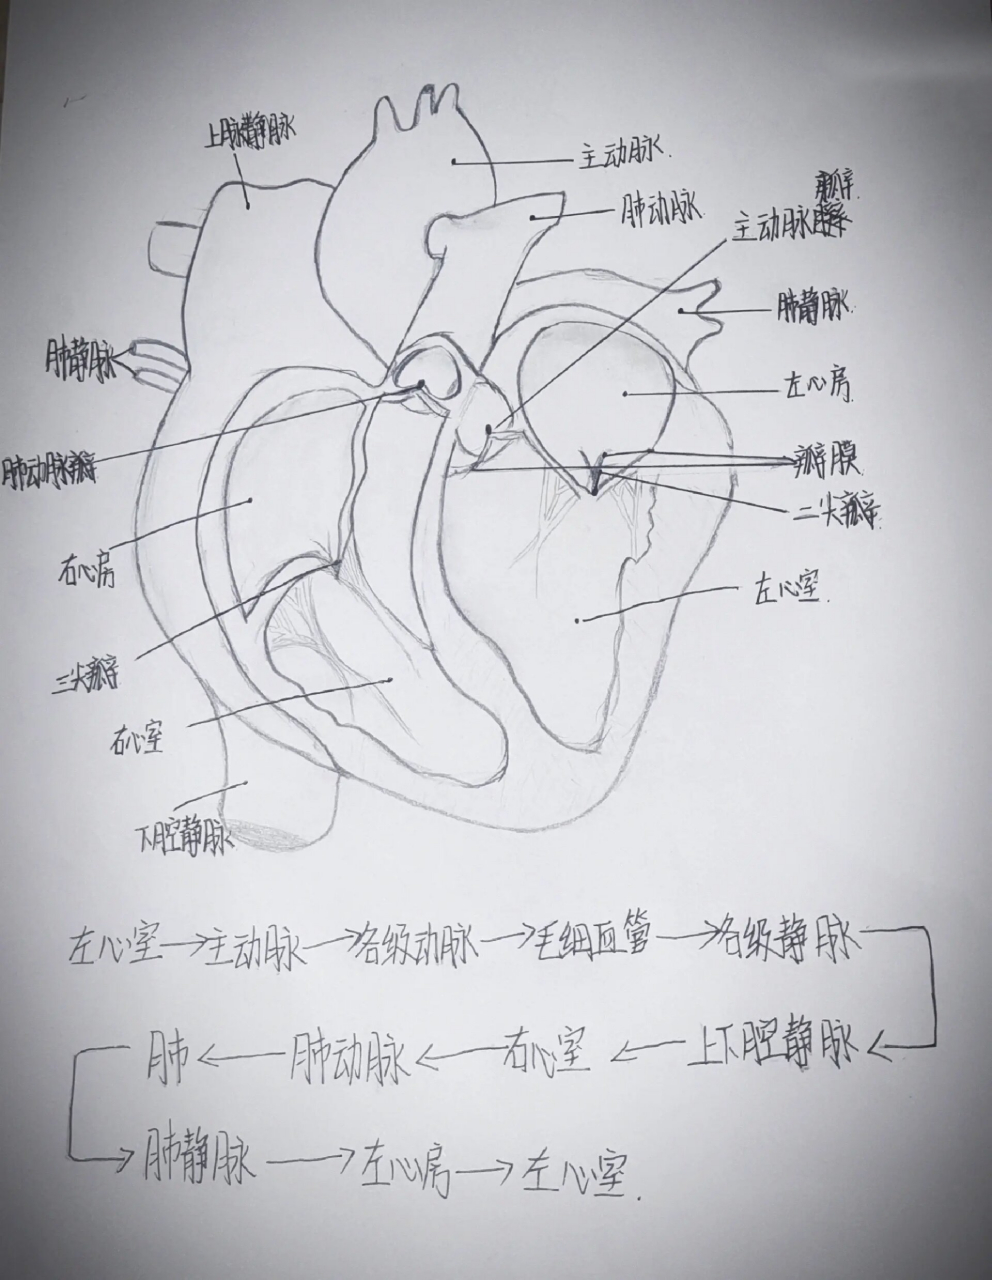 上脉静脉
主动脉
肺动脉
瓣
主动脉
肺静脉
肺静脉
左心房
瓣膜
肺动脉瓣
二尖瓣
右心房
左心室
三尖瓣
右心室
下腔静脉
左心室→主动脉→各级动脉→毛细血管→各级静脉
肺←肺动脉←右心室←上下腔静脉
肺静脉→左心房→左心室.